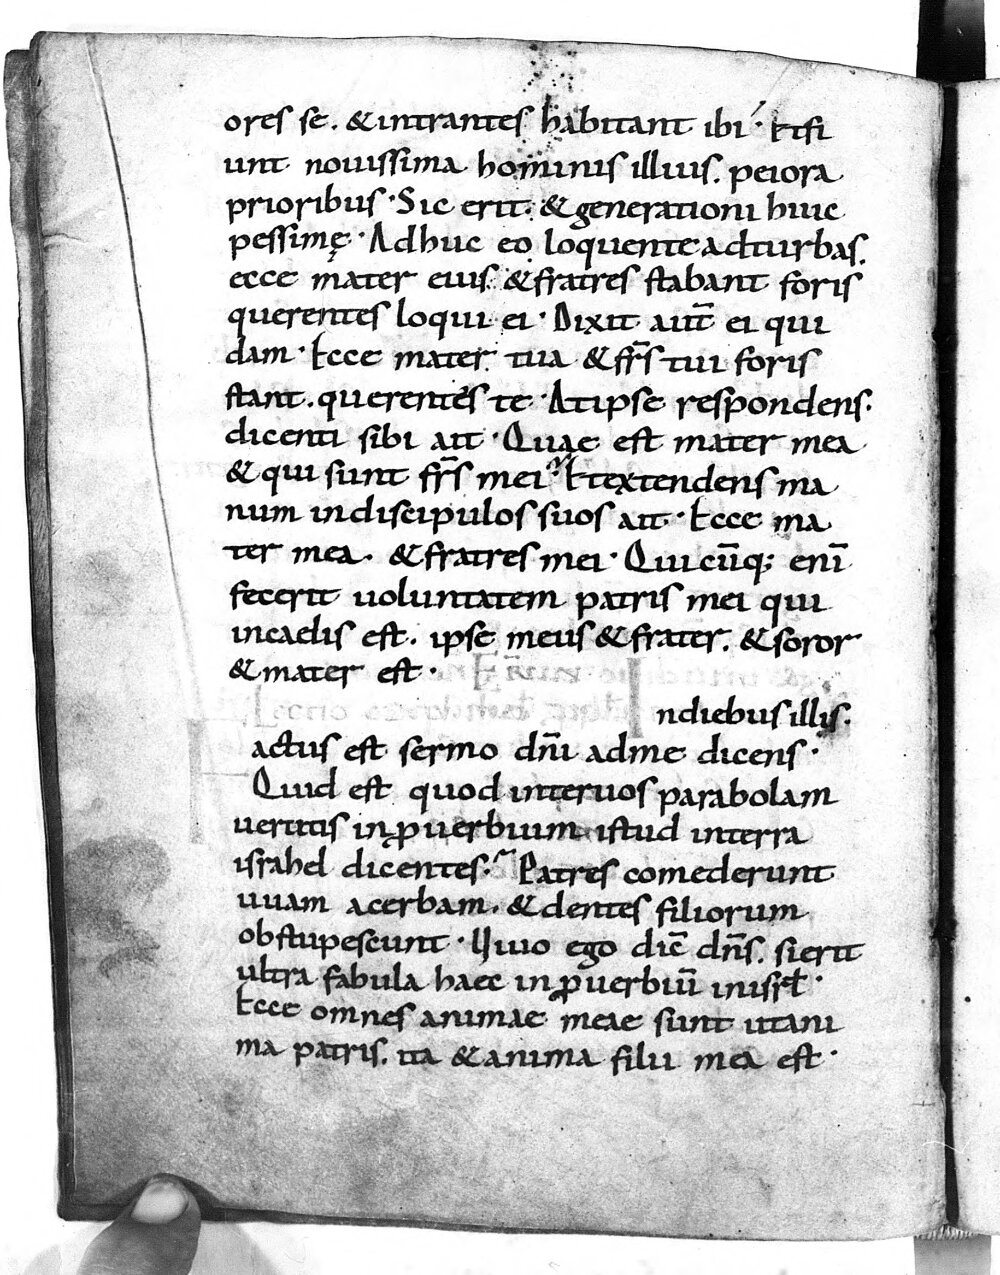 ores se. & intrantes habitant ibi· Et fi
unt nouissima hominis illius. peiora
prioribus· Sic erit. & generationi huic
pessimę· Adhuc eo loquente ad turbas.
ecce mater eius. & fratres stabant foris
querentes loqui ei· Dixit aut̄ ei qui
dam· Ecce mater tua & fr̄s tui foris
stant. querentes te· At ipse respondens.
dicenti sibi ait· Quae est mater mea
& qui sunt fr̄s mei? Et extendens ma
num in discipulos suos ait· Ecce ma
ter mea. & fratres mei· Quicūq; enī
fecerit uoluntatem patris mei qui
in caelis est. ipse meus & frater. & soror
& mater est·
In diebus illis.
actus est sermo dn̄i ad me dicens·
Quid est quod inter uos parabolam
uertitis in ꝓuerbium istud in terra
israhel dicentes· Patres comederunt
uuam acerbam. & dentes filiorum
obstupescunt· Viuo ego dic̄ dn̄s. si erit
ultra fabula haec in ꝓuerbiū in isrł·
Ecce omnes animae meae sunt ut ani
ma patris. ita & anima filii mea est·